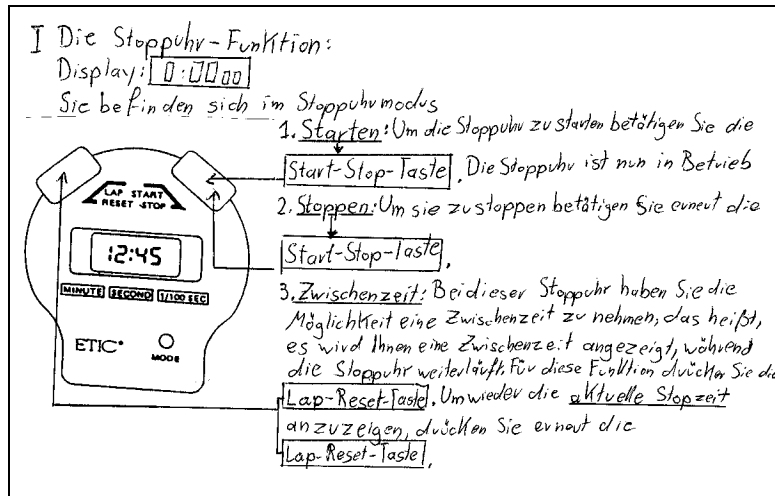 I Die Stoppuhr-Funktion:
Display: 0:0000
Sie befinden sich im Stoppuhrmodus
1. Starten: Um die Stoppuhr zu starten betätigen Sie die
Start-Stop-Taste. Die Stoppuhr ist nun in Betrieb
2. Stoppen: Um sie zu stoppen betätigen Sie erneut die
Start-Stop-Taste.
3. Zwischenzeit: Bei dieser Stoppuhr haben Sie die
Möglichkeit eine Zwischenzeit zu nehmen, das heißt,
es wird Ihnen eine Zwischenzeit angezeigt, während
die Stoppuhr weiterläuft. Für diese Funktion drücken Sie die
Lap-Reset-Taste. Um wieder die aktuelle Stopzeit
anzuzeigen, drücken Sie erneut die
Lap-Reset-Taste.
LAP START
RESET STOP
12:45
MINUTE SECOND 1/100 SEC
ETIC
MODE